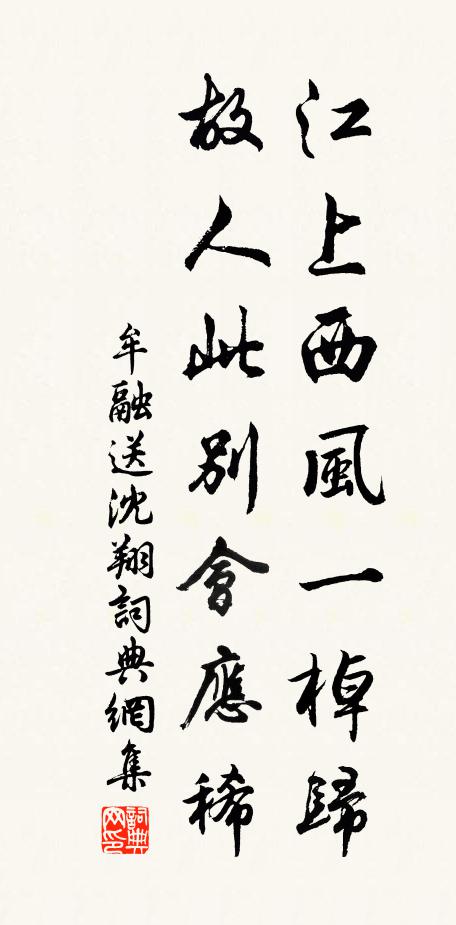 江上西風一棹歸
故人此別會應稀
牟融送沈翔詞典網集
詞典网印